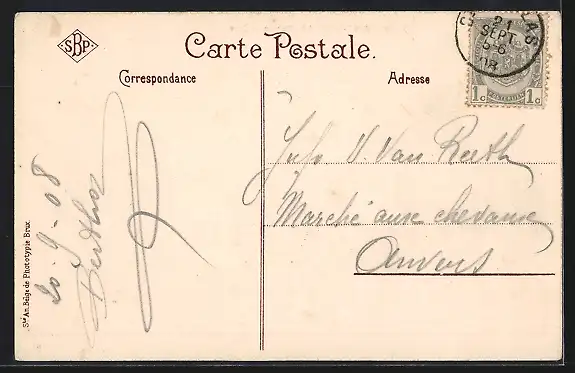 SBP
Carte Postale.
Correspondance
Adresse
21
SEPT
5-6
08
1c 1c
Jufr V. Van Reeth
Marché aux chevaux
Anvers
20-9-08
Berthe
Sté An. Belge de Phototypie Brux.